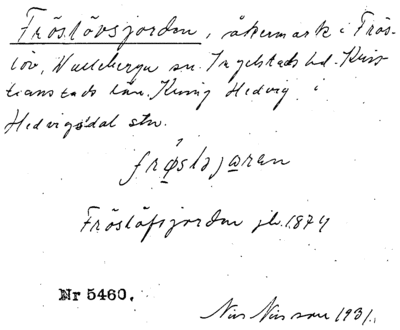 Fröslövsjorden, åkermark i Frös-
löv, Valleberga sn. Ingelstads hd. Kris-
tianstads län. Kunig Hedvig i
Hedvigsdal stn.
frøslajɑren
Fröslöfsjorden jb. 1874
Nr 5460.
Nils Nilsson 1931.